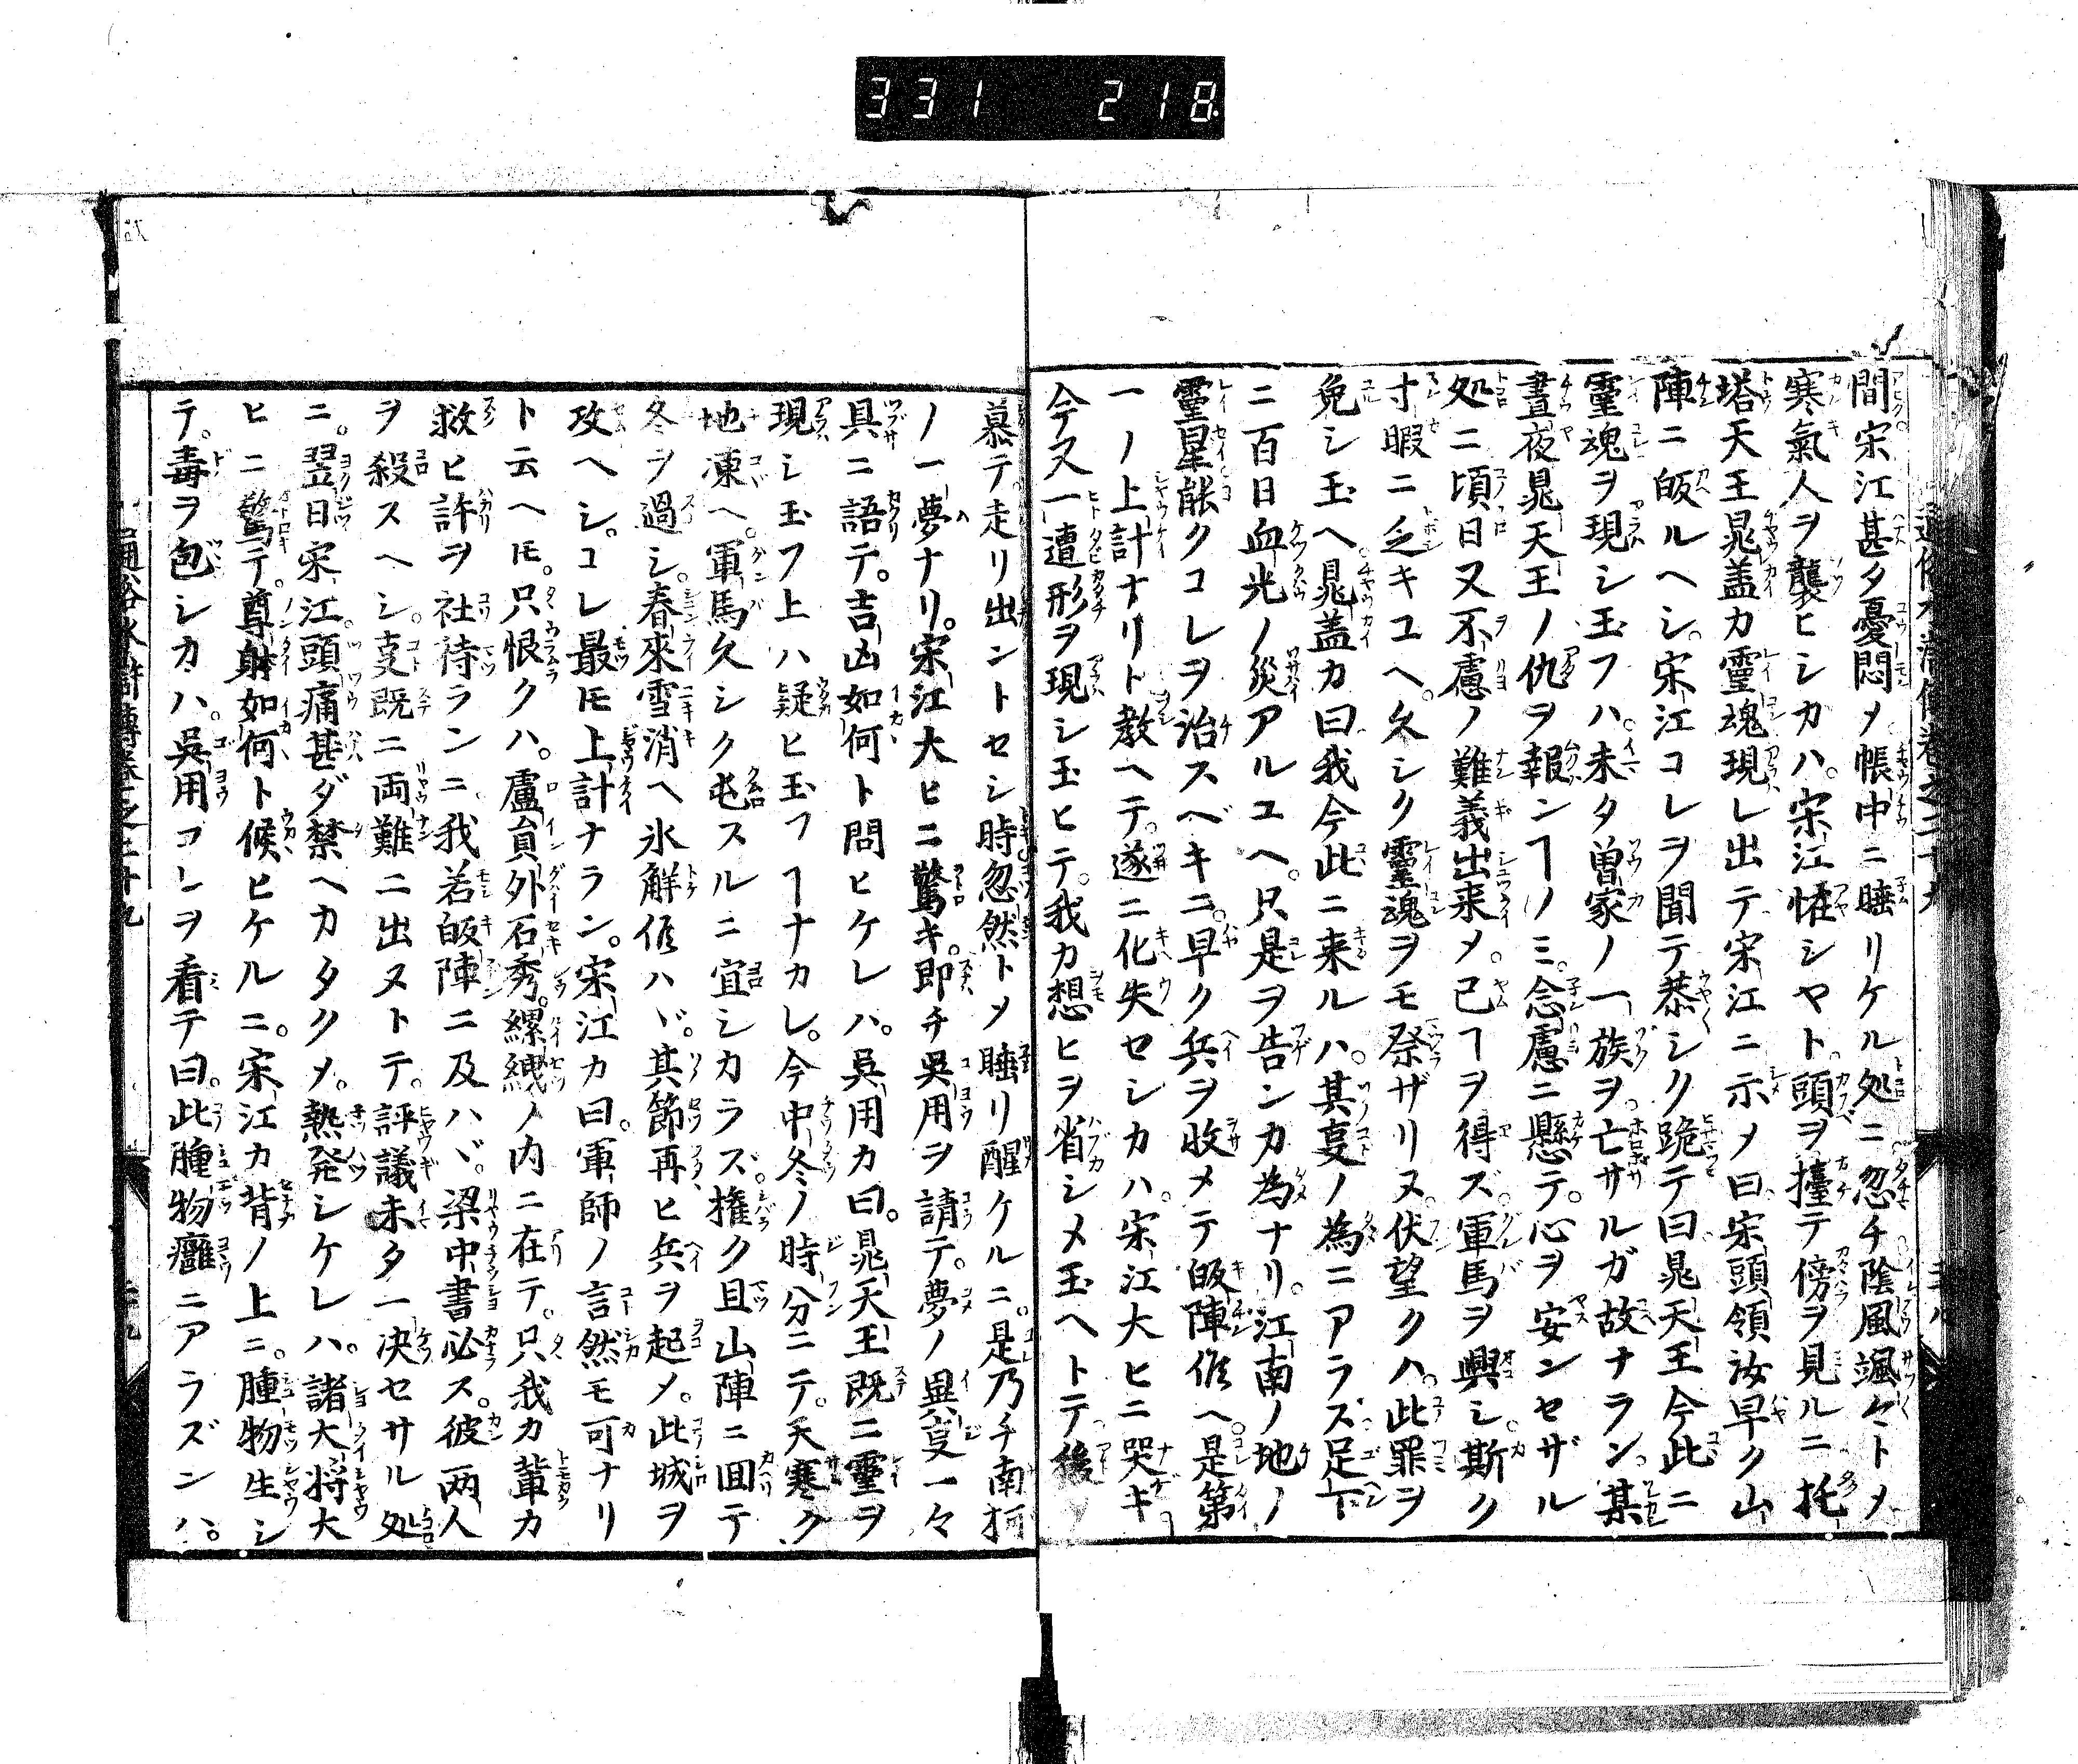 331 218
間宋江甚タ憂悶メ帳中ニ睡リケル処ニ忽チ陰風颯々トメ
寒氣人ヲ襲ヒシカハ。宋江怪シヤト。頭ヲ擡テ傍ヲ見ルニ托
塔天王晁盖カ靈魂現レ出テ宋江ニ示メ曰宋頭領汝早ク山
陣ニ皈ルヘシ。宋江コレヲ聞テ恭シク跪テ曰晁天王今此ニ
靈魂ヲ現シ玉フハ。未タ曽家ノ一族ヲ。亡サルガ故ナラン。某
晝夜晁天王ノ仇ヲ報ンヿノミ。念慮ニ懸テ。心ヲ安ンセザル
処ニ頃日又不慮ノ難義出来メ。己ヿヲ得ズ。軍馬ヲ興シ。斯ク
寸暇ニ乏キユヘ。久シク靈魂ヲモ祭ザリヌ。伏望クハ。此罪ヲ
免シ玉ヘ。晁盖カ曰我今此ニ来ルハ。其㕝ノ為ニアラズ足下
ニ百日血光ノ災アルユヘ。只是ヲ告ンカ為ナリ。江南ノ地ノ
靈星能クコレヲ治スベキニ。早ク兵ヲ收メテ皈陣侭ヘ。是第
一ノ上計ナリト教ヘテ。遂ニ化失セシカハ。宋江大ヒニ哭キ
今又一遭形ヲ現シ玉ヒテ。我カ想ヒヲ省シメ玉ヘトテ後
慕テ走リ出ントセシ時忽然トメ睡リ醒ケルニ。是乃チ南柯
ノ一夢ナリ。宋江大ヒニ驚キ。即チ吳用ヲ請テ。夢ノ異㕝一々
具ニ語テ。吉凶如何ト問ヒケレハ。吳用カ曰。晁天王既ニ靈ヲ
現シ玉フ上ハ疑ヒ玉フヿナカレ。今中冬ノ時分ニテ。天寒ク
地凍ヘ。軍馬久シク屯スルニ宜シカラズ。権ク且山陣ニ囬テ
冬ヲ過シ。春來雪消ヘ氷觧侭ハヾ。其節再ヒ兵ヲ起メ。此城ヲ
攻ヘシ。コレ最モ上計ナラン。宋江カ曰。軍師ノ言然モ可ナリ
ト云ヘ𪜈。只恨クハ。盧員外石秀。縲絏ノ内ニ在テ。只我カ軰カ
救ヒ許ヲ社待ランニ我若皈陣ニ及ハヾ。梁中書必ス。彼両人
ヲ殺スヘシ。㕝既ニ両難ニ出ヌトテ。評議未タ一决セサル処
ニ。翌日宋江。頭痛甚ダ禁ヘカタクメ。熱発シケレハ。諸大将大
ヒニ驚テ。尊躰如何ト候ヒケルニ。宋江カ背ノ上ニ。腫物生シ
テ。毒ヲ包シカハ。吳用コレヲ看テ曰。此腫物癰ニアラズンハ。
通俗水滸傳巻之二十九